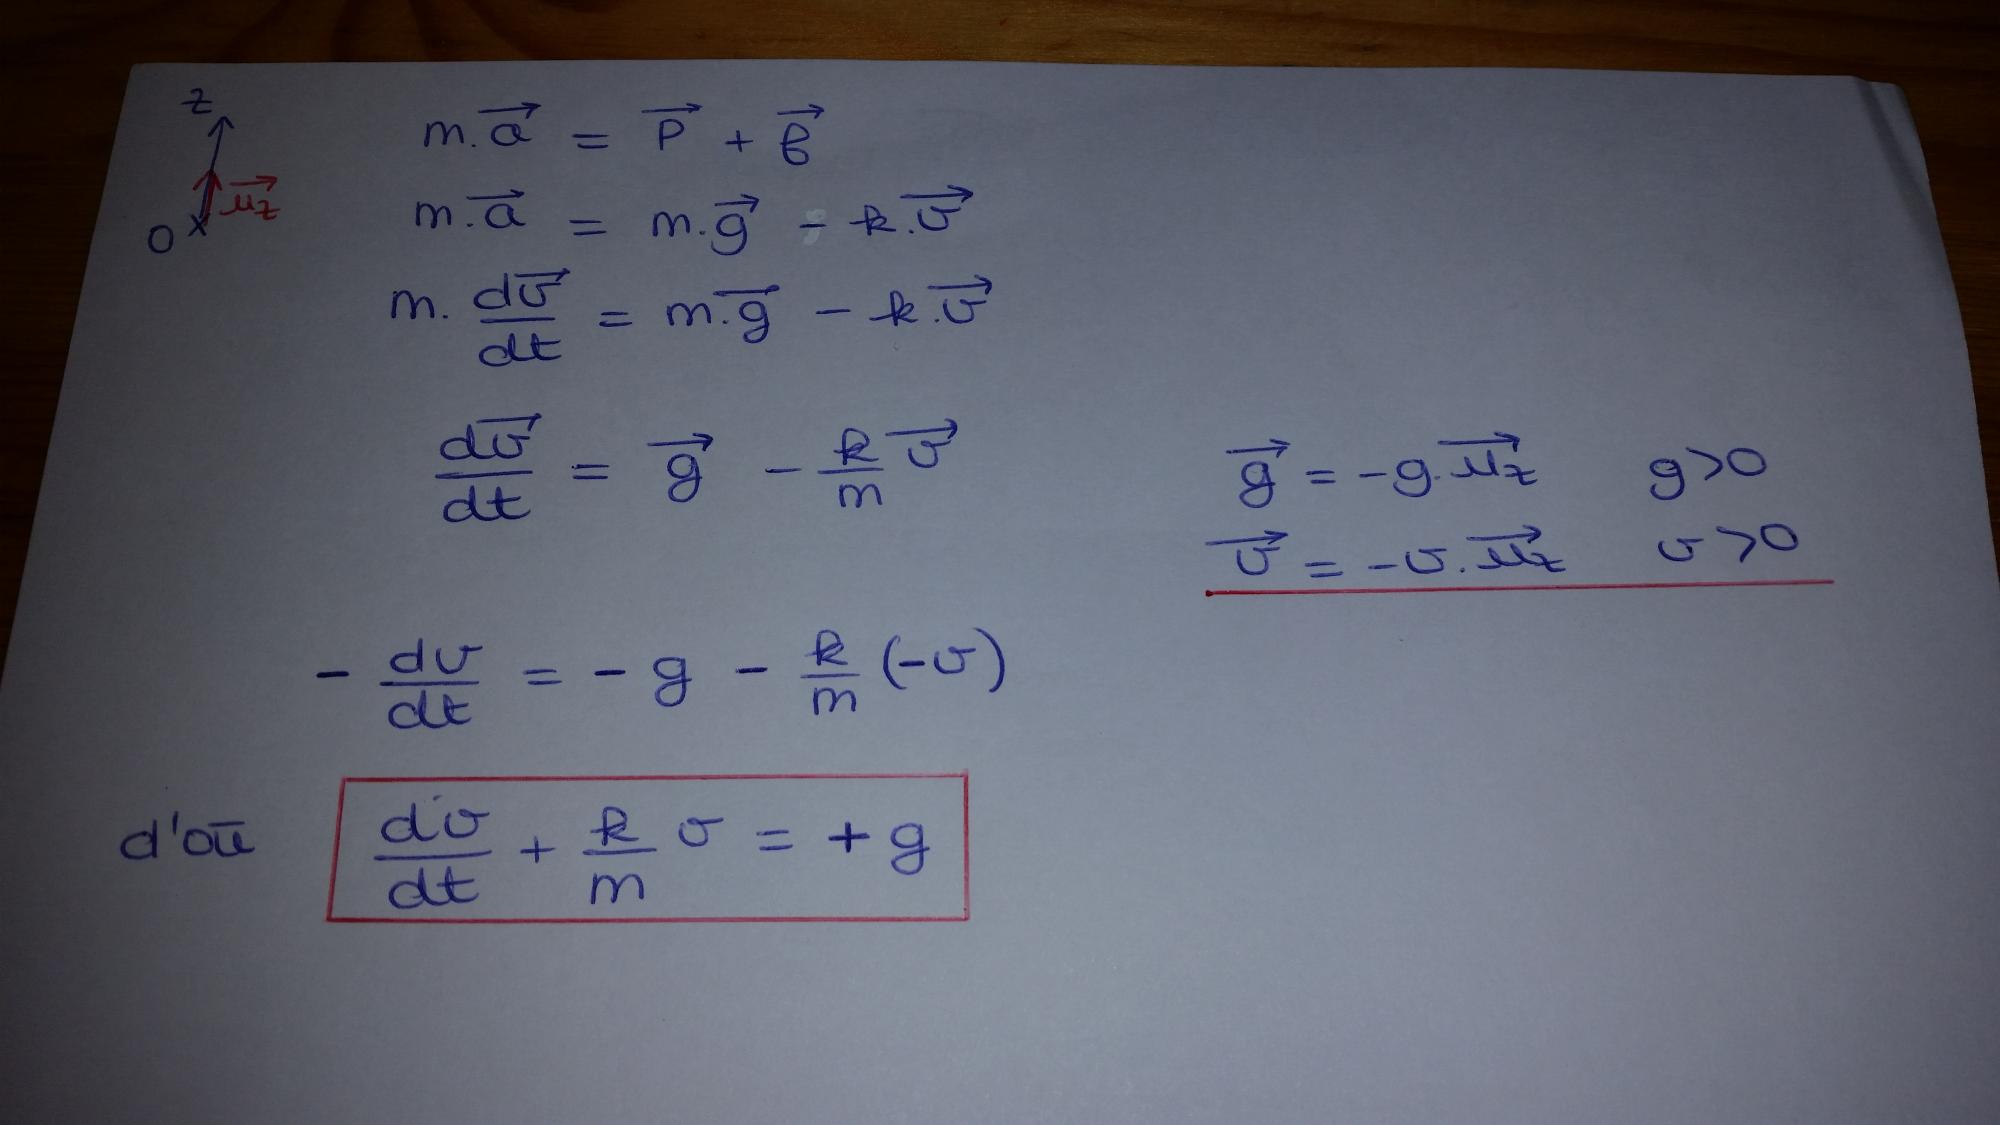 z
u⃗z
O
m.a⃗ = P⃗ + f⃗
m.a⃗ = m.g⃗ - k.v⃗
m. dv⃗/dt = m.g⃗ - k.v⃗
dv⃗/dt = g⃗ - k/m v⃗
g⃗ = -g.u⃗z g>0
v⃗ = -v.u⃗z v>0
- dv/dt = - g - k/m (-v)
d'où dv/dt + k/m v = + g